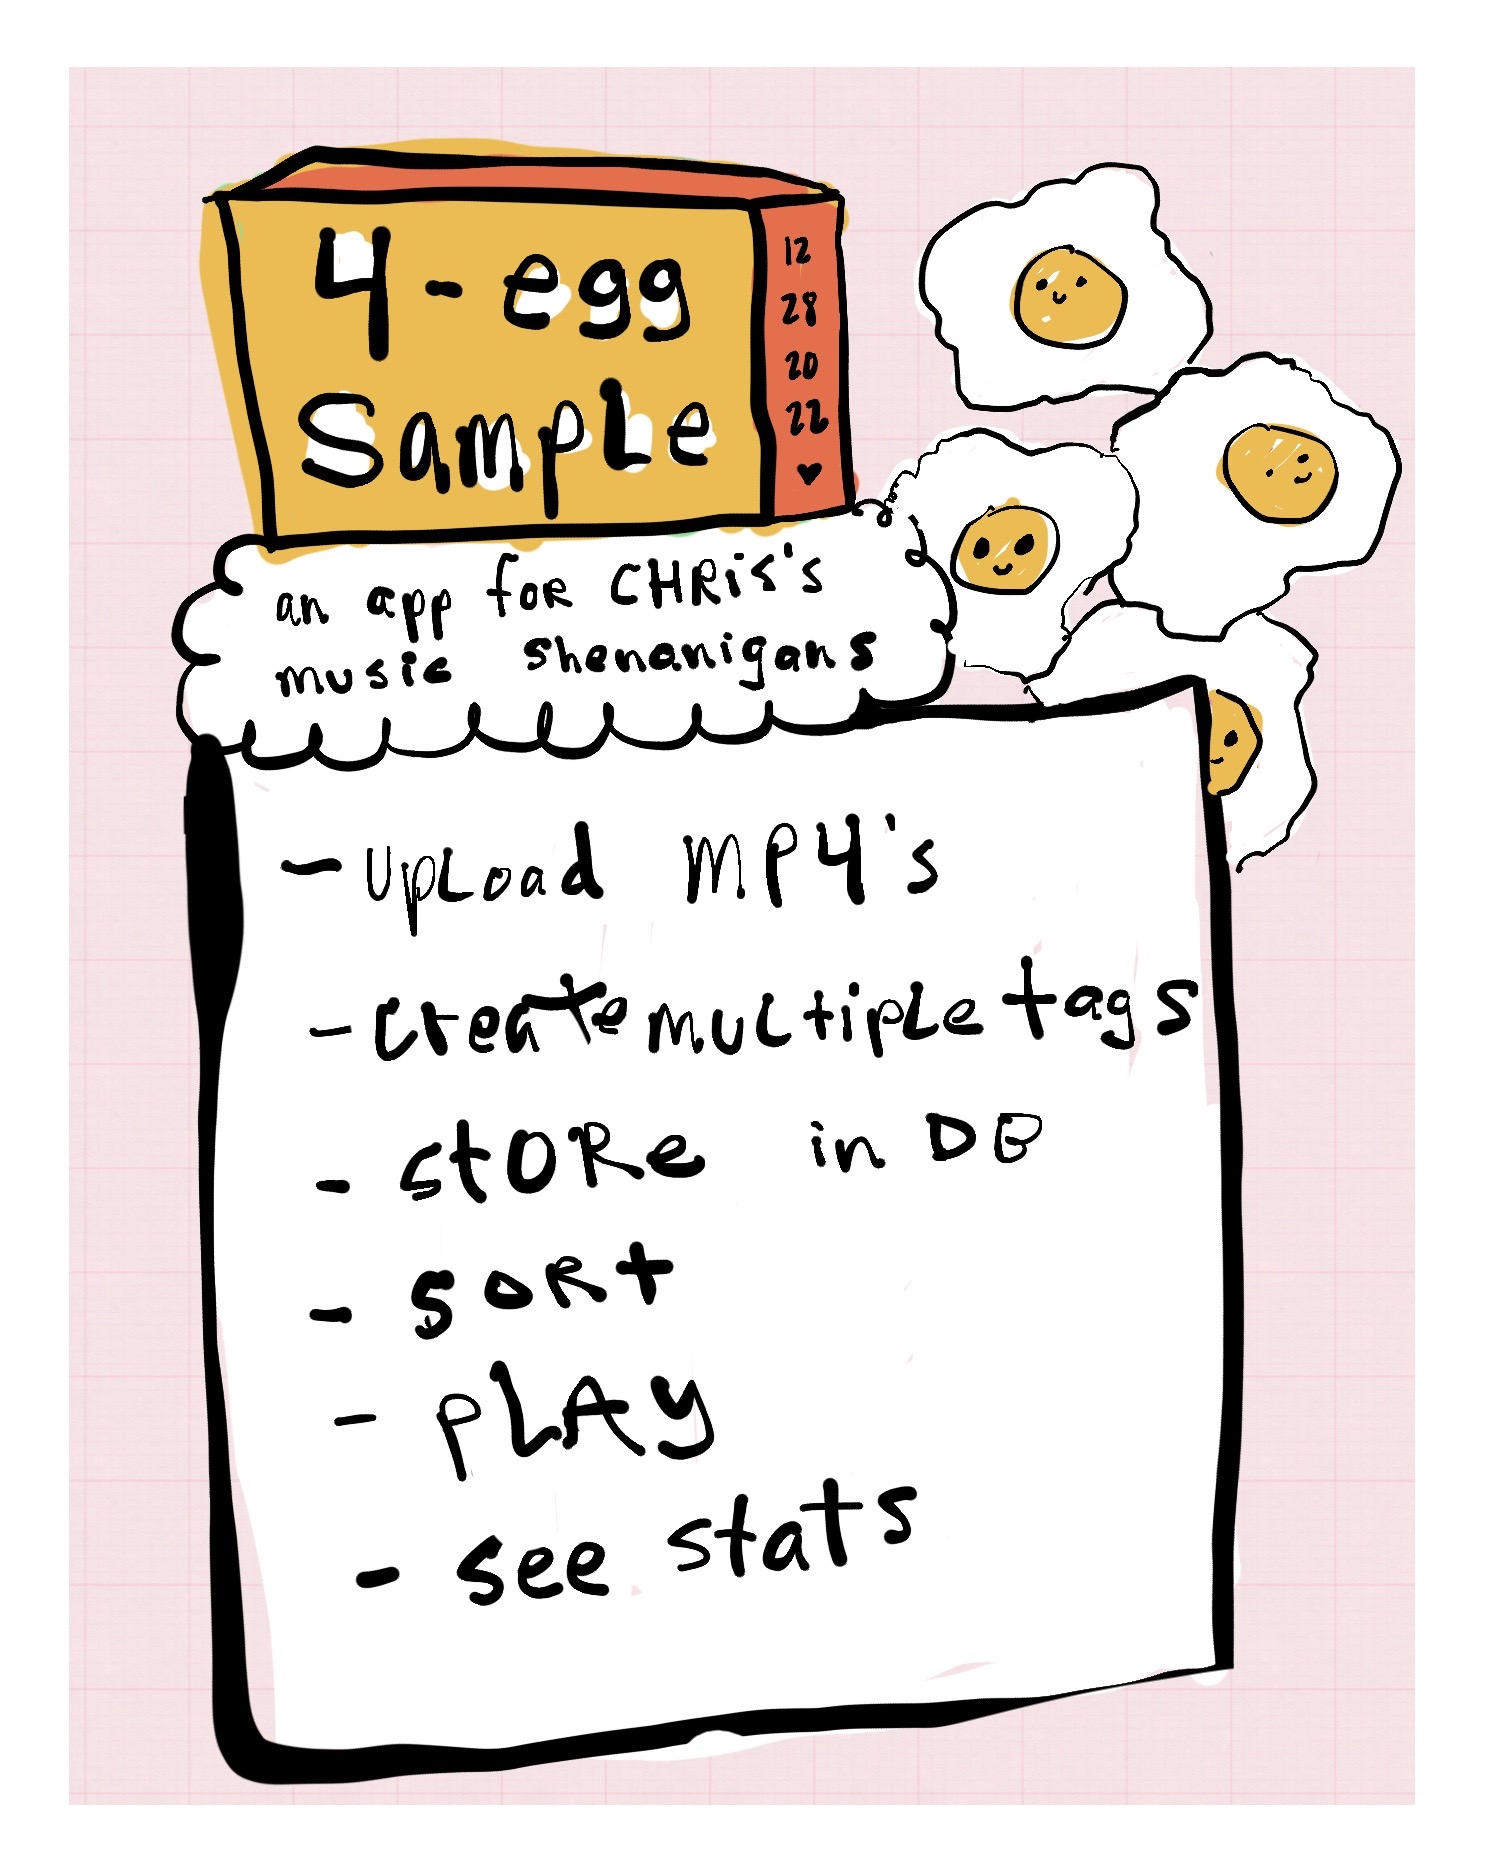 4-egg
Sample
12
28
20
22
an app for CHRis's
music shenanigans
- UpLoad MP4's
- Create multiple tags
- stORe in DB
- soRt
- pLAy
- see stats